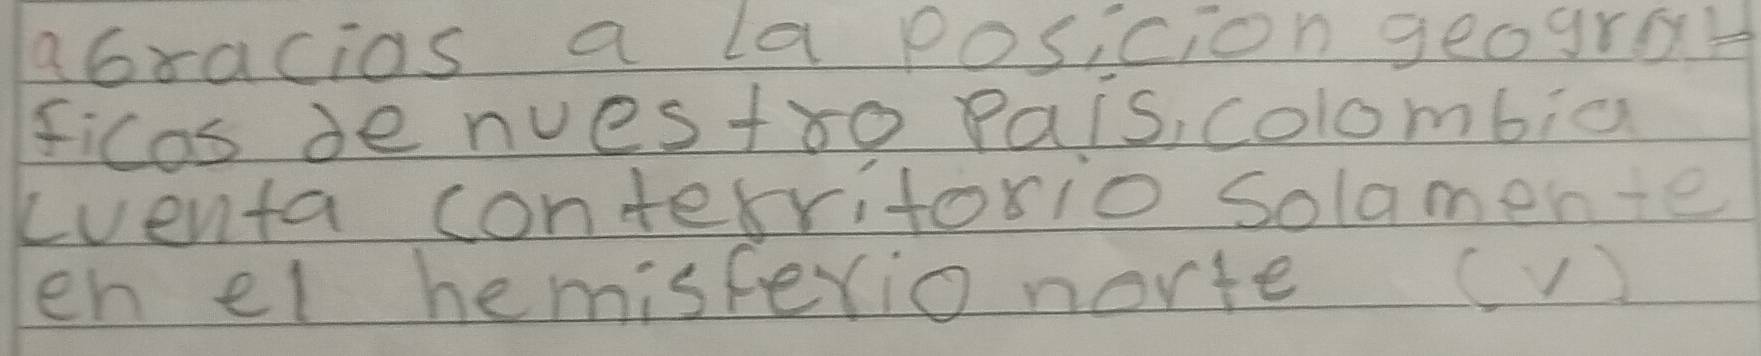 a Gracias a la posicion geogra-
ficas de nuestro país, colombia
cuenta con territorio solamente
en el hemisferio norte (v)